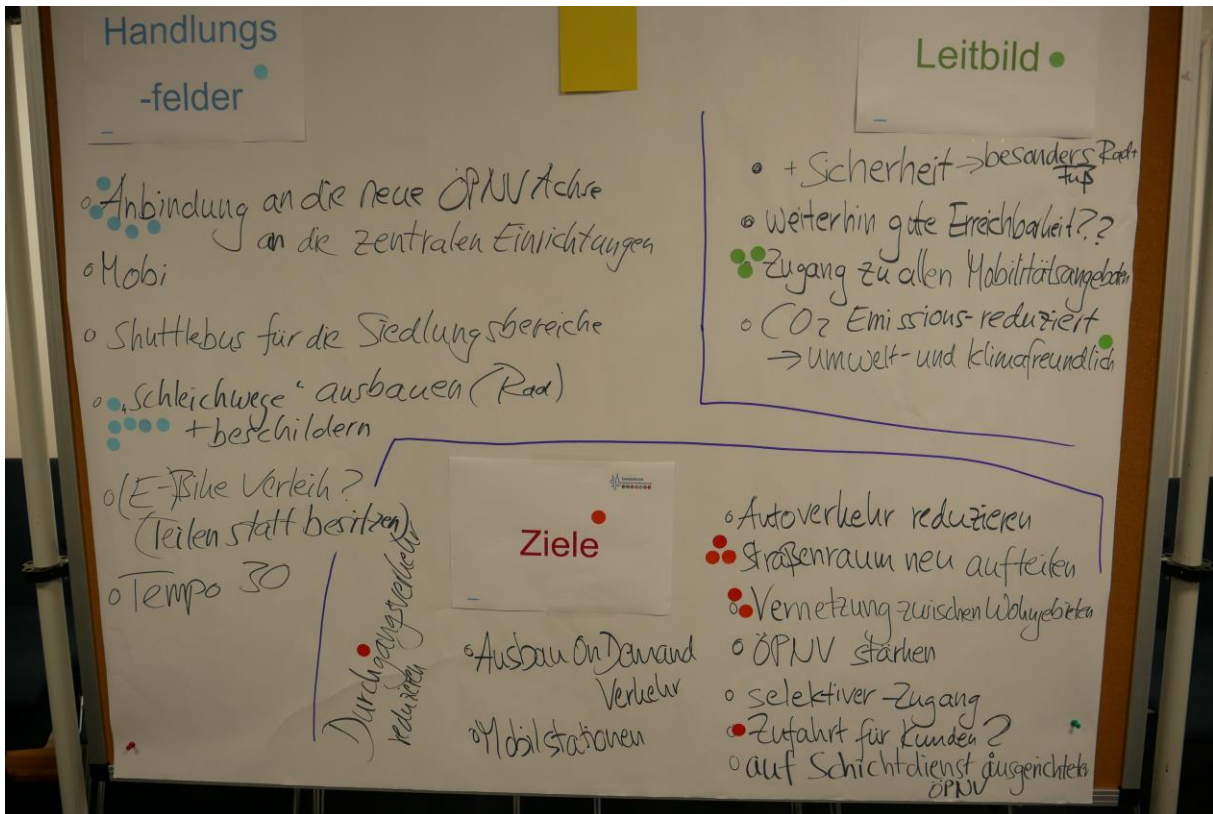 Handlungs
-felder
Anbindung an die neue ÖPNV Achse
an die zentralen Einrichtungen
Mobi
Shuttlebus für die Siedlungsbereiche
„Schleichwege“ ausbauen (Rad)
+ beschildern
(E-)Bike Verleih?
(Teilen statt besitzen)
Tempo 30
Leitbild
+ Sicherheit → besonders Rad+
Fuß
weiterhin gute Erreichbarkeit??
Zugang zu allen Mobilitätsangeboten
CO2 Emissions-reduziert
→ umwelt- und klimafreundlich
Ziele
Durchgangsverkehr
reduzieren
Ausbau On Demand
Verkehr
Mobilstationen
Autoverkehr reduzieren
Straßenraum neu aufteilen
Vernetzung zwischen Wohngebieten
ÖPNV stärken
selektiver Zugang
Zufahrt für Kunden?
auf Schichtdienst ausgerichteter
ÖPNV